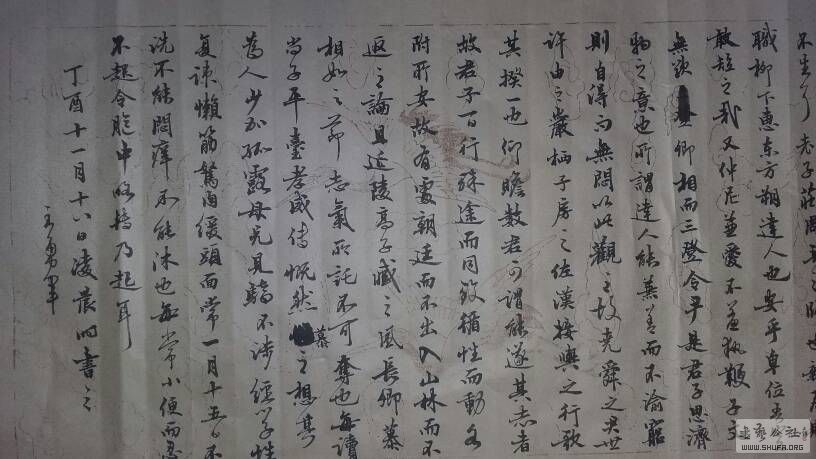 老子莊周吾之師也
職柳下惠東方朔達人也安乎卑位吾
敢短之哉又仲尼兼愛不羞執鞭子文
無欲卿相而三登令尹是君子思濟
物之意也所謂達人能兼善而不渝窮
則自得而無悶以此觀之故堯舜之君世
許由之巖栖子房之佐漢接輿之行歌
其揆一也仰瞻數君可謂能遂其志者
故君子百行殊途而同致循性而動各
附所安故有處朝廷而不出入山林而不
返之論且延陵高子臧之風長卿慕
相如之節志氣所託不可奪也每讀
尚子平臺孝威傳慨然慕之想其
為人少加孤露母兄見驕不涉經學性
復疎懶筋駑肉緩頭面常一月十五日不
洗不能悶癢不能沐也每常小便而忍
不起令胞中略轉乃起耳
丁酉十一月十八日凌晨書之
王勇軍
WWW.SHUFA.ORG